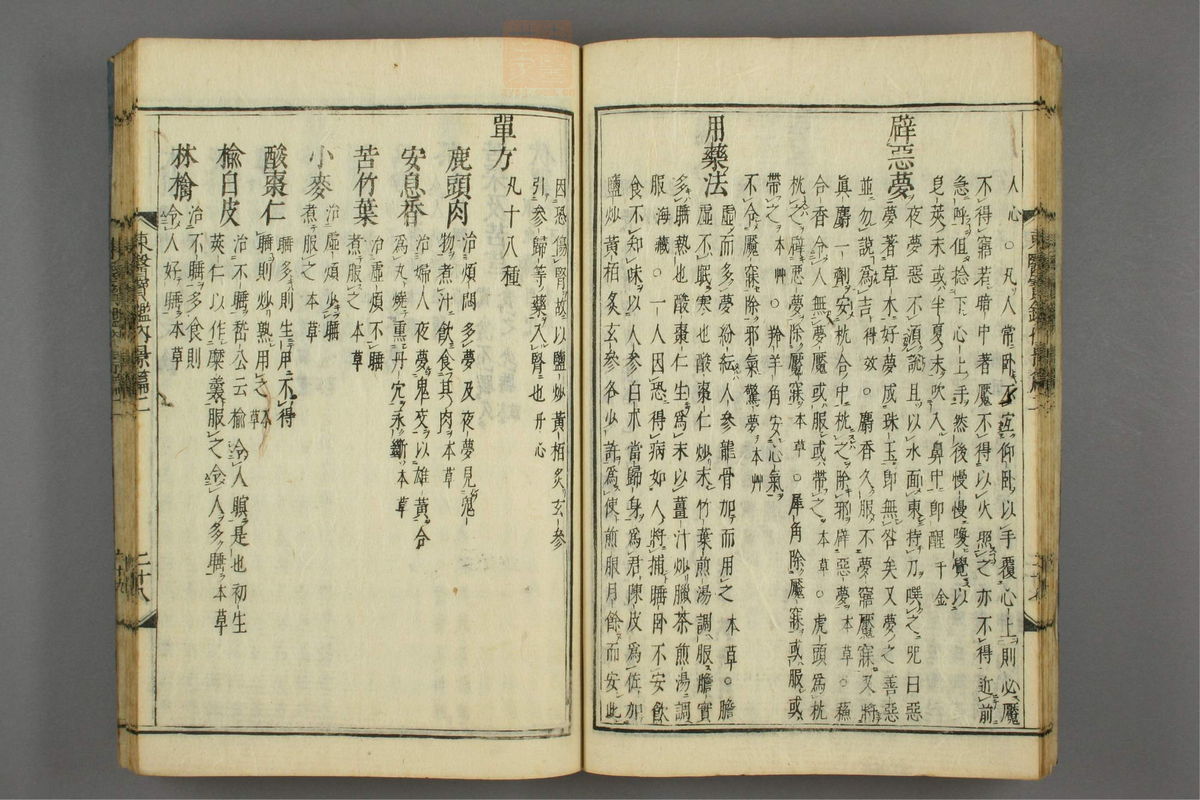 人心○凡人常臥不宜仰臥以手覆心上則必魘
不得寤若暗中著魘不得以火照之亦不得近前
急呼但捻下心上手然後慢慢喚覺以
皂莢末或半夏末吹入鼻中卽醒千金
辟惡夢
夜夢惡不須說且以水面東持刀噀之咒曰惡
夢著草木好夢成珠玉卽無咎矣又夢之善惡
並勿說爲吉得效○麝香久服不夢寤魘寐又將
眞麝一劑安枕合中枕之除邪辟惡夢本草○蘇
合香令人無夢魘或服或帶之本草○虎頭爲枕
枕之辟惡夢除魘寐本草○犀角除魘寐或服或
帶之本艸○羚羊角安心氣
不令魘寐除邪氣驚夢本艸
用藥法
虛而多夢紛紜人參龍骨加而用之本草○膽
虛不眠寒也酸棗仁炒末竹葉煎湯調服膽實
多睡熱也酸棗仁生爲末以薑汁炒臘茶煎湯調
服海藏○一人因恐得病如人將捕睡臥不安飮
食不知味以人參白朮當歸身爲君陳皮爲佐加
鹽炒黃栢炙玄參各少許爲使煎服月餘而安此
因恐傷腎故以鹽炒黃栢炙玄參
引參歸等藥入腎也丹心
單方
凡十八種
鹿頭肉
治煩悶多夢及夜夢見鬼
物煮汁飮食其肉本草
安息香
治婦人夜夢鬼交以雄黃合
爲丸燒熏丹穴永斷本草
苦竹葉
治虛煩不睡
煮服之本草
小麥
治虛煩少睡
煮服之本草
酸棗仁
睡多則生用不得
睡則炒熟用之本草
楡白皮
治不睡嵇公云楡令人瞑是也初生
莢仁以作糜羹服之令人多睡本草
林檎
治不睡多食則
令人好睡本草
東醫寶鑑內景篇二
二十八